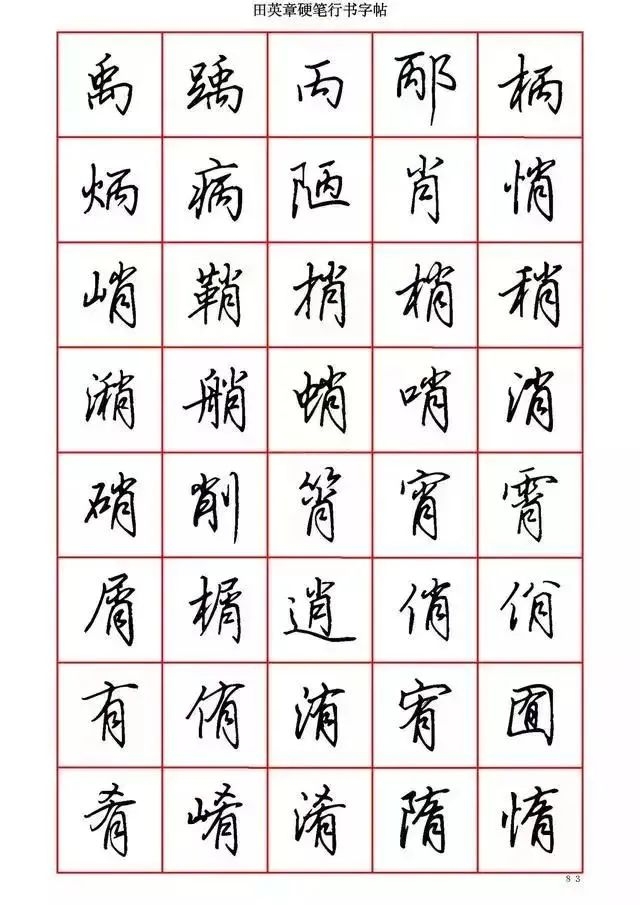 田英章硬笔行书字帖
禹 踽 丙 邴 柄
炳 病 陋 肖 悄
峭 鞘 捎 梢 稍
潲 艄 蛸 哨 消
硝 削 筲 宵 霄
屑 榍 逍 俏 佾
有 侑 洧 宥 囿
肴 崤 淆 隋 惰
83